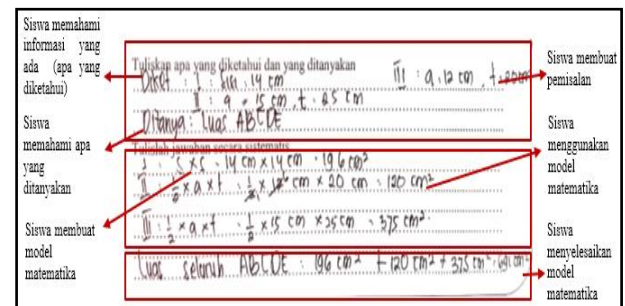 Siswa memahami
informasi yang
ada (apa yang
diketahui)
Siswa
memahami apa
yang
ditanyakan
Siswa membuat
model
matematika
Tuliskan apa yang diketahui dan yang ditanyakan
Diket : I : Sisi . 14 cm III : a . 12 cm , t . 20 cm
II : a = 15 cm , t . 25 cm
Ditanya : Luas ABCDE
Tulislah jawaban secara sistematis
I : s x s . 14 cm x 14 cm . 196 cm²
II 1/2 x a x t : 1/2 x cm x 20 cm : 120 cm²
III : 1/2 x a x t : 1/2 x 15 cm x 25 cm = 375 cm²
Luas seluruh ABCDE : 196 cm² + 120 cm² + 375 cm² :
Siswa membuat
pemisalan
Siswa
menggunakan
model
matematika
Siswa
menyelesaikan
model
matematika